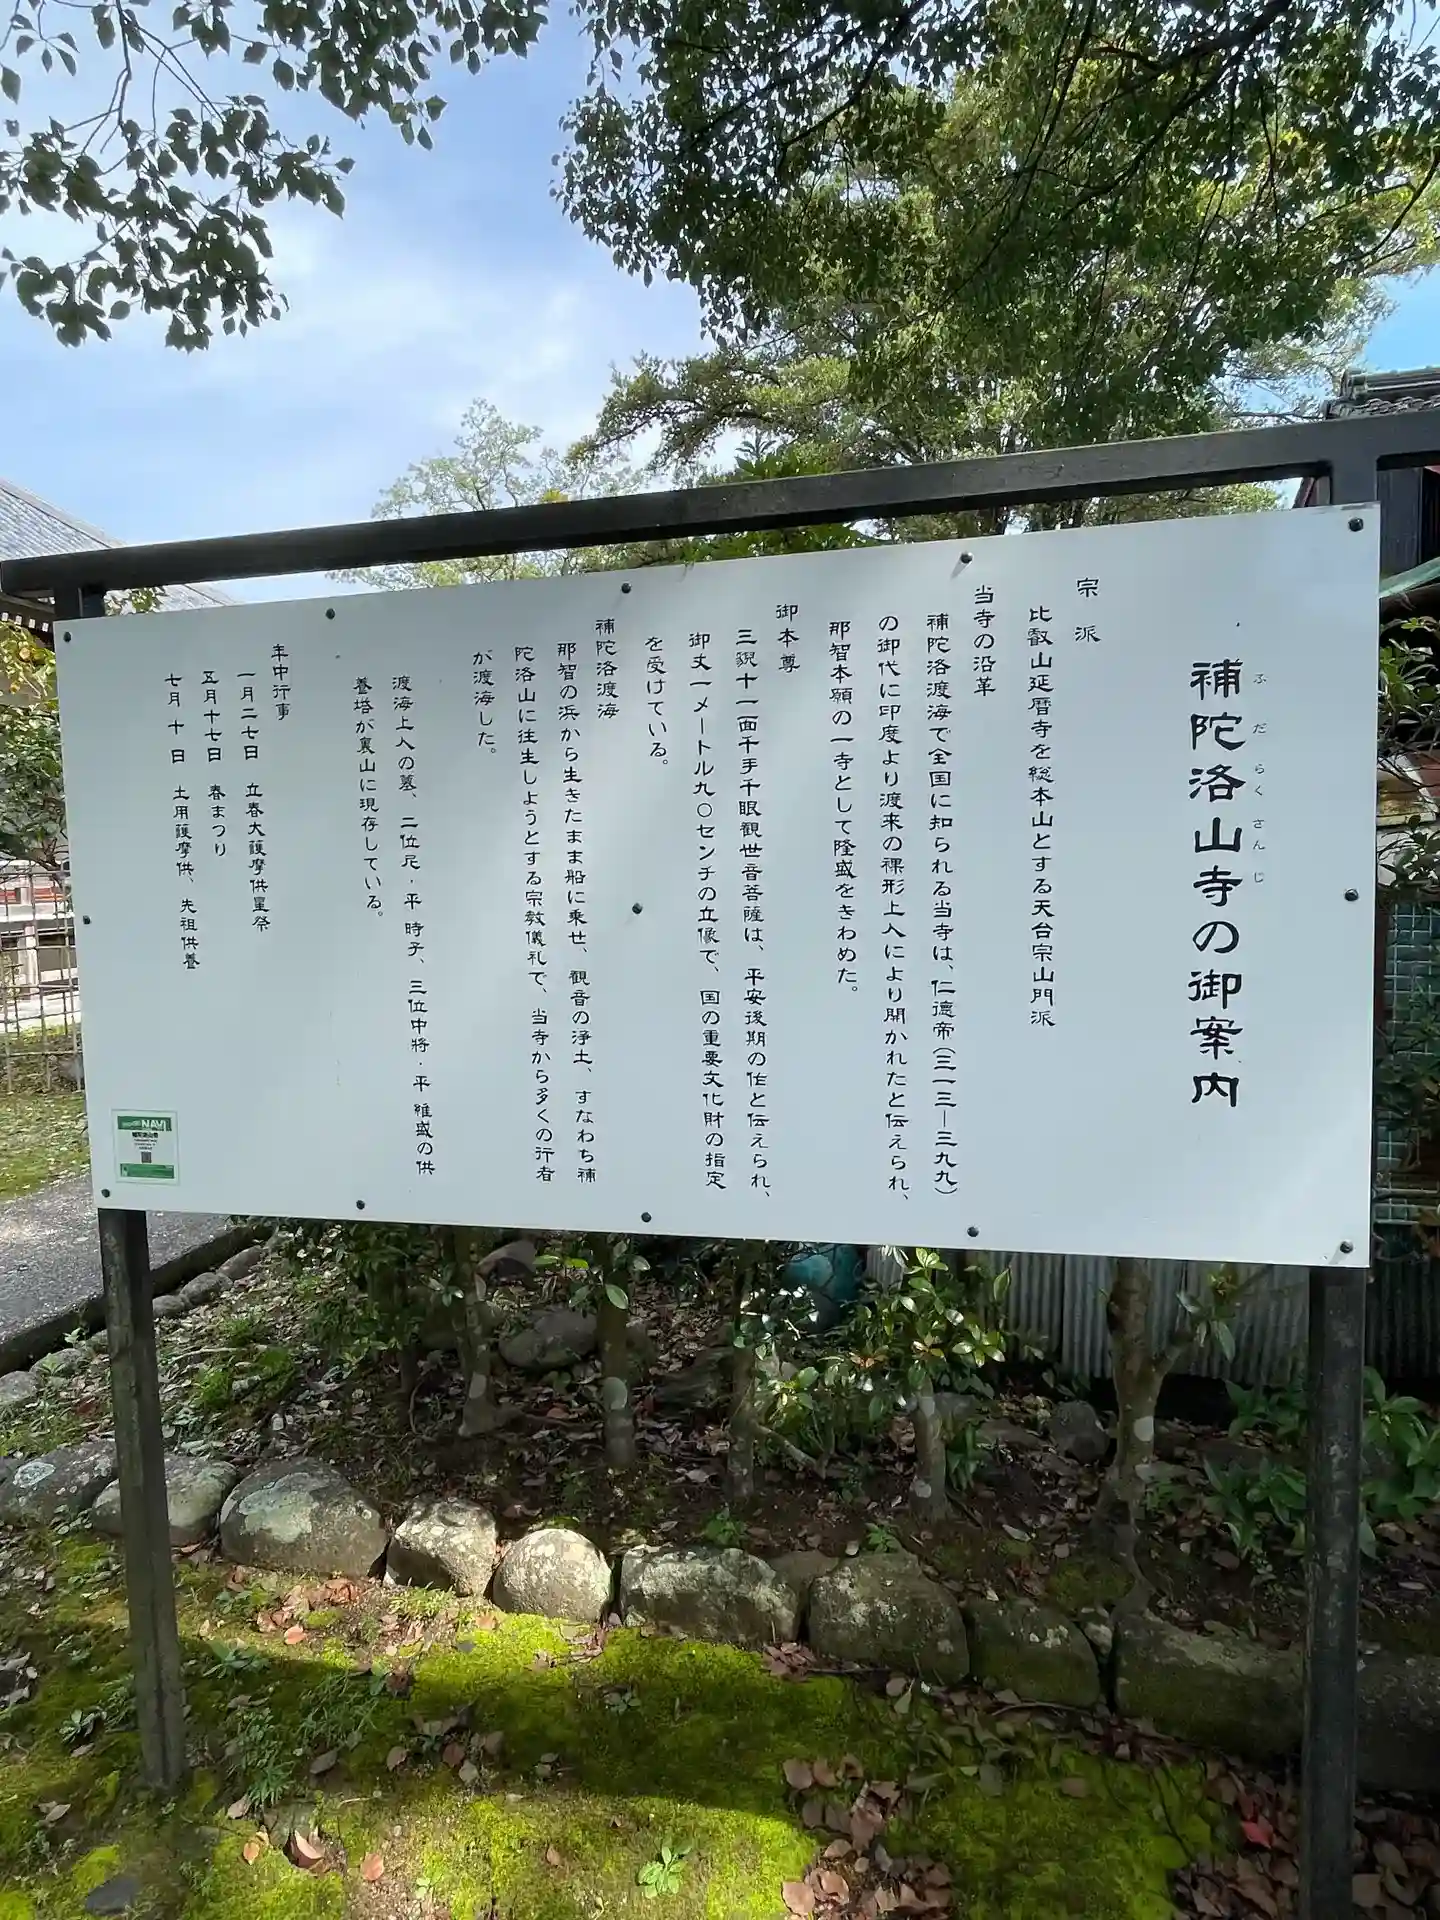 補陀洛山寺の御案内
ふだらくさんじ
宗派
比叡山延暦寺を総本山とする天台宗山門派
当寺の沿革
補陀洛渡海で全国に知られる当寺は、仁徳帝(三一三ー三九九)
の御代に印度より渡来の裸形上人により開かれたと伝えられ、
那智本願の一寺として隆盛をきわめた。
御本尊
三貌十一面千手千眼観世音菩薩は、平安後期の作と伝えられ、
御丈一メートル九〇センチの立像で、国の重要文化財の指定
を受けている。
補陀洛渡海
那智の浜から生きたまま船に乗せ、観音の浄土、すなわち補
陀洛山に往生しようとする宗教儀礼で、当寺から多くの行者
が渡海した。
渡海上人の墓、二位尼・平時子、三位中将・平維盛の供
養塔が裏山に現存している。
年中行事
一月二七日 立春大護摩供星祭
五月十七日 春まつり
七月十日 土用護摩供、先祖供養
NAVI